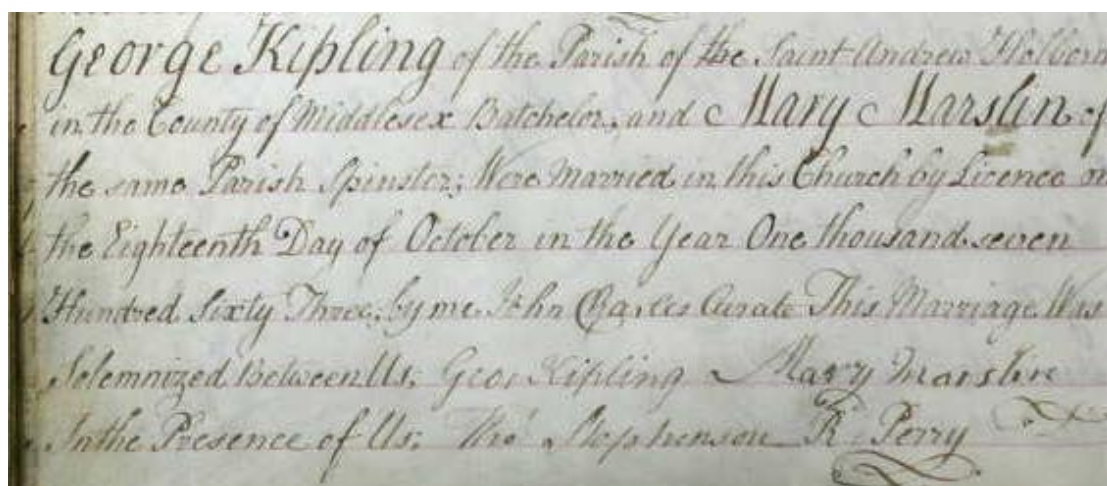 George Kipling of the Parish of the Saint Andrew Holborn
in the County of Middlesex Batchelor, and Mary Marslin of
the same Parish Spinster; Were Married in this Church by Licence on
the Eighteenth Day of October in the Year One thousand seven
Hundred Sixty Three, by me John Curate This Marriage Was
Solemnized Between Us. Geo: Kipling Mary
In the Presence of Us. Tho.s Stephenson R: Perry